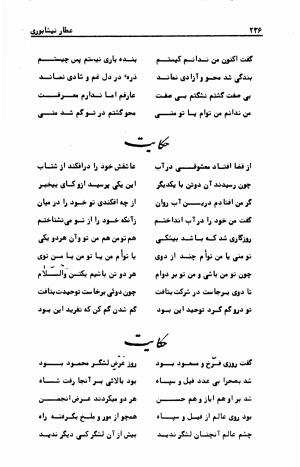 ۲۳۶ عطار نیشابوری
گفت اکنون من ندانم کیستم بنده باری نیستم پس چیستم
بندگی شد محو و آزادی نماند ذره‌ء در دل غم و شادی نماند
بی صفت گشتم نگشتم بی صفت عارفم اما ندارم معرفت
من ندانم من توام یا تو منی محو گشتم در تو گم شد منی
حکایت
از قضا افتاد معشوقی در آب عاشقش خود را درافکند از شتاب
چون رسیدند آن دوتن با یکدیگر این یکی پرسید ازو کای بیخبر
گر من افتادم درین آب روان از چه افکندی تو خود را در میان
گفت من خود را در آب انداختم زآنکه خود را از تو می‌نشناختم
روزگاری شد که باشد بیشکی هم توم من هم تو من هر دو یکی
تو منی یا من توام چند از دوی با توام من یا توم یا من توی
چون تو من باشی و من تو بر دوام هر دو تن باشیم یکتن والسلام
تا دوی برجاست در شرکت بتافت چون دوئی برخاست توحیدت بتافت
تو درو گم گرد توحید این بود گم شدن گم کن که تفرید این بود
حکایت
گفت روزی فرخ و مسعود بود روز عرض لشگر محمود بود
شد بصحرا بی عدد فیل و سپاه بود بالائی بر آنجا رفت شاه
شد بر او هم ایاز و هم حسن هر دو میکردند عرض انجمن
بود روی عالم از فیل و سپاه همچو از مور و ملخ بگرفته راه
چشم عالم آنچنان لشگر ندید بیش از آن لشگر کسی دیگر ندید